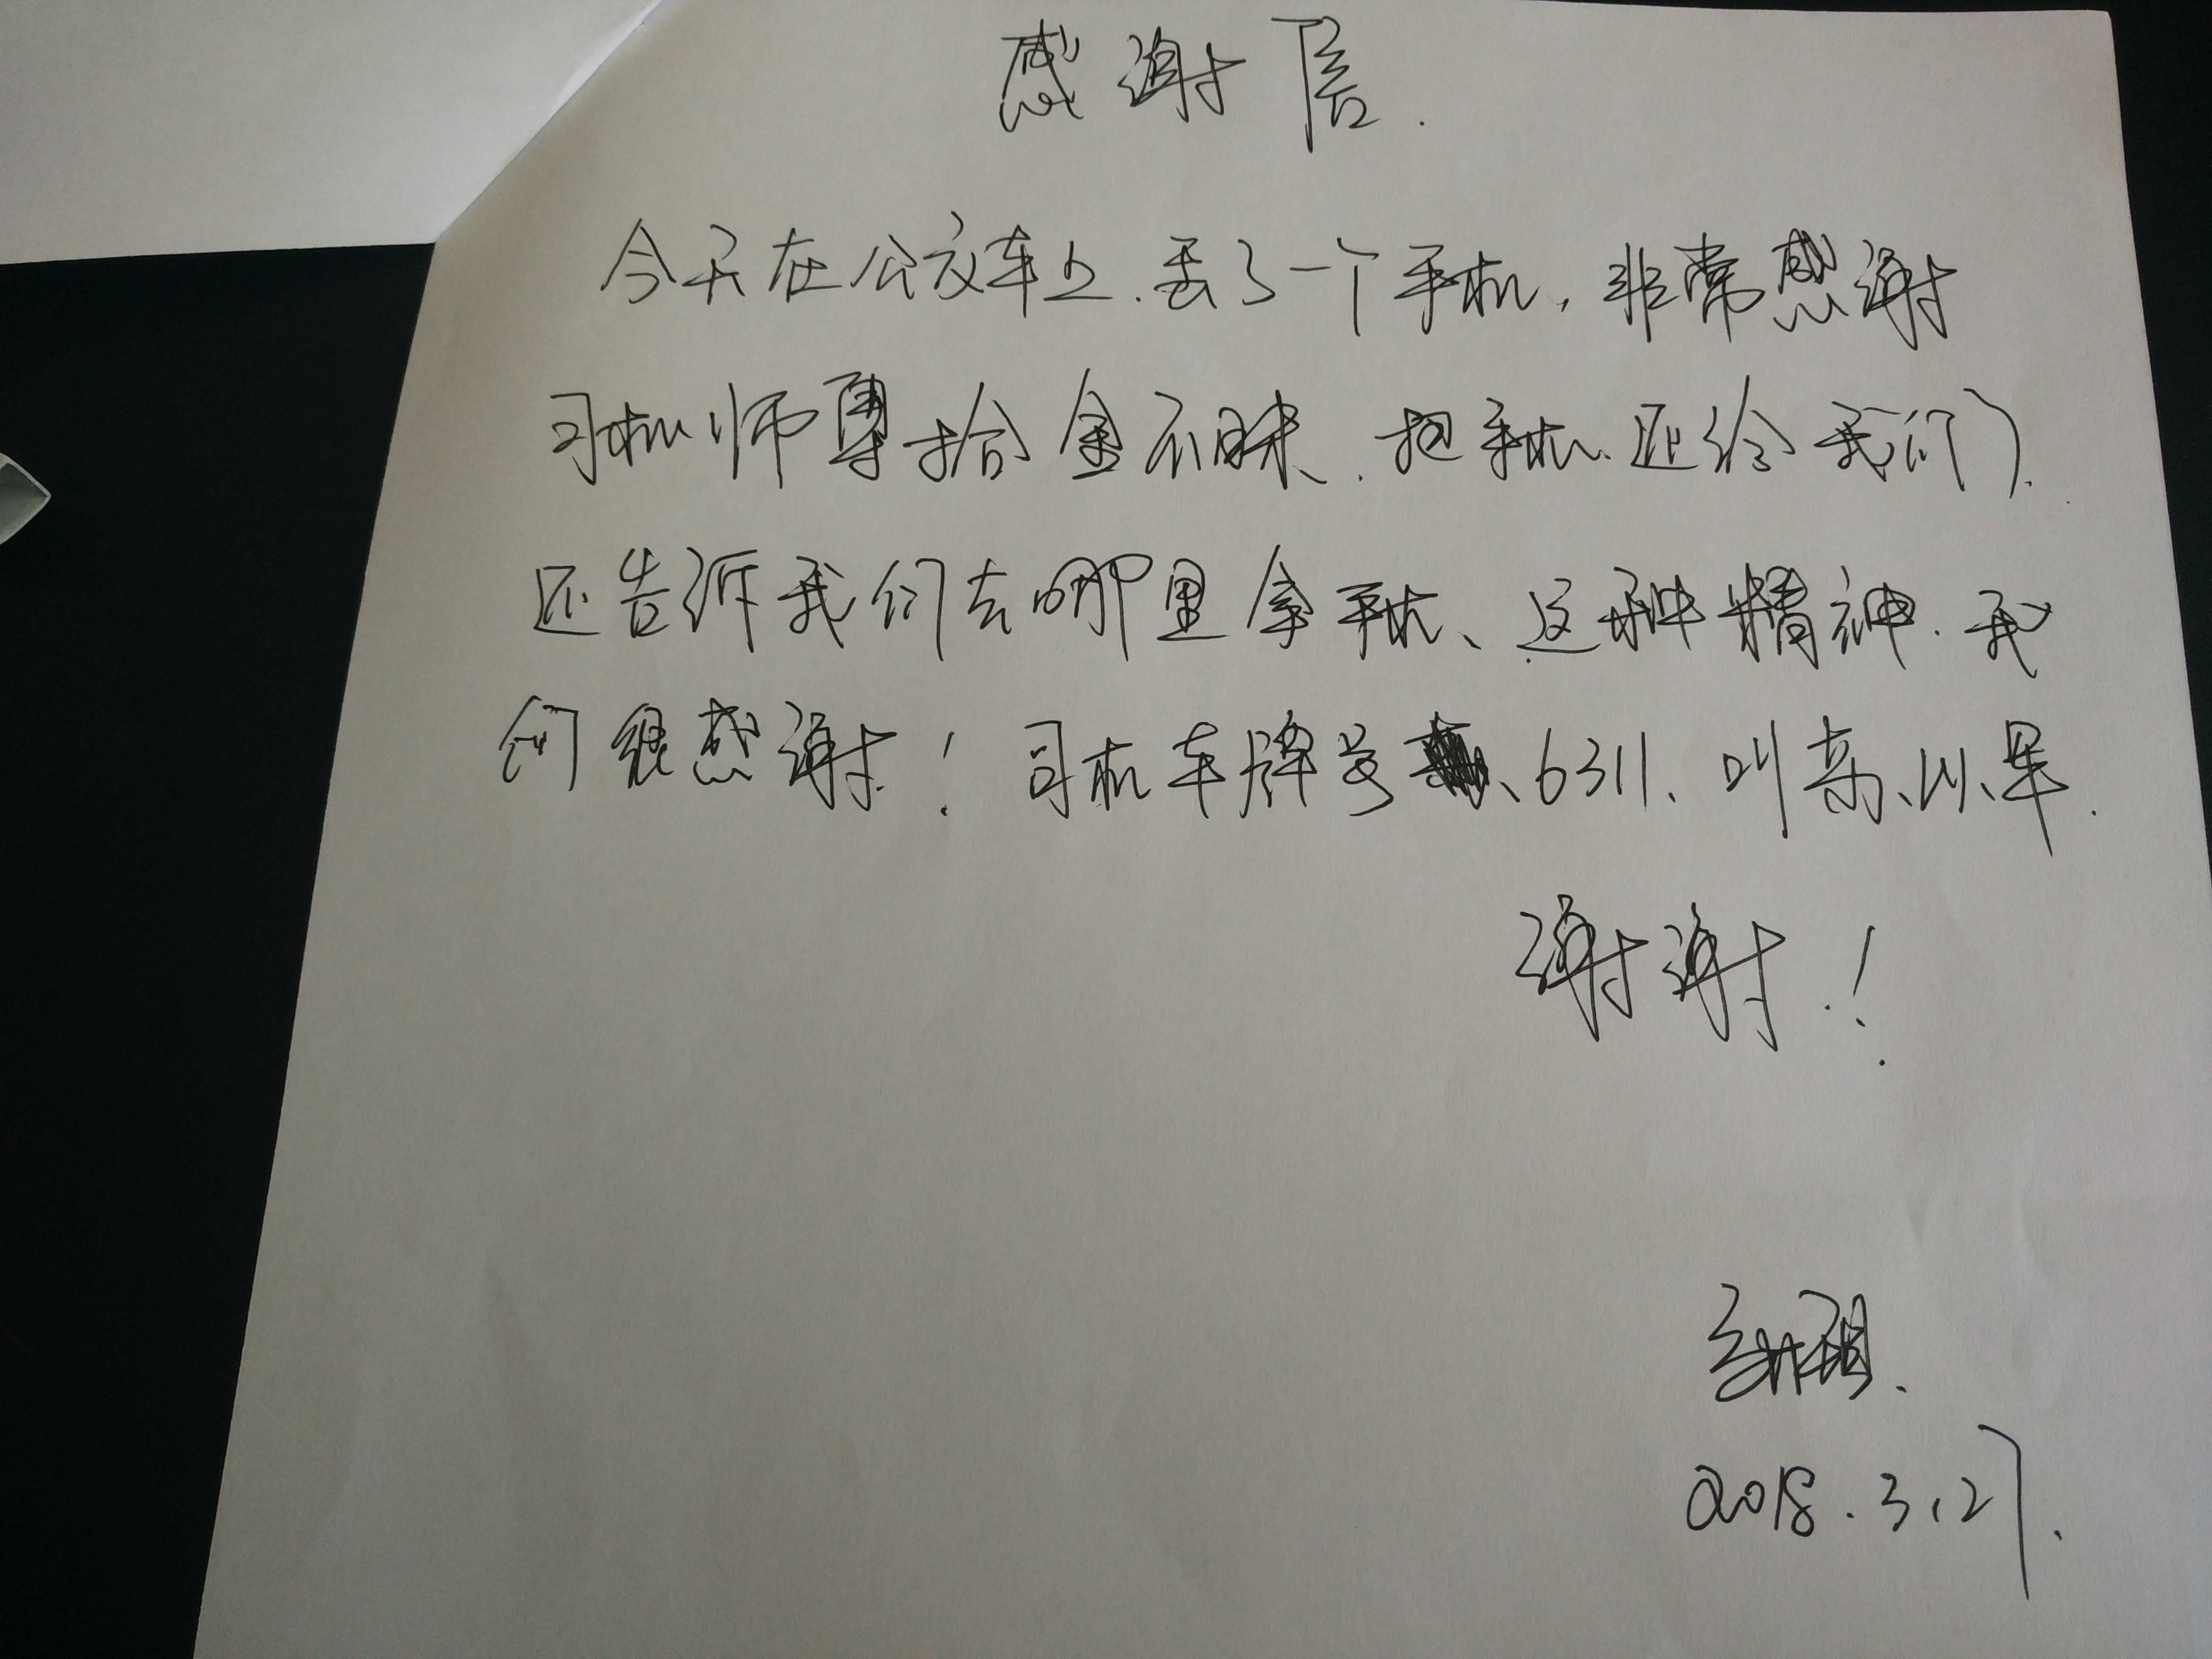 感谢信.
今天在公交车上.丢了一个手机,非常感谢
司机师傅拾金不昧.把手机、还给我们.
还告诉我们去哪里拿手机、这种精神.我
们很感谢!司机车牌号、6311、叫
谢谢!
2018.3.27.